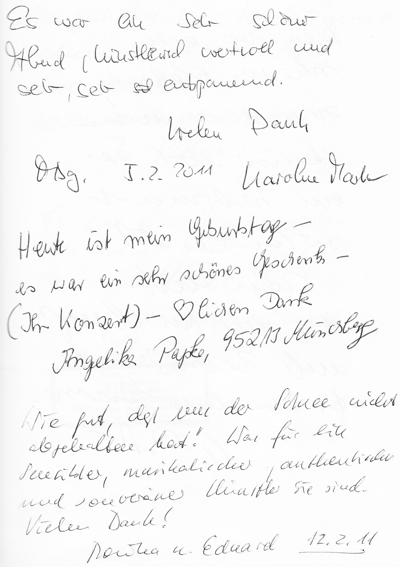 Es war ein sehr schöner
Abend, künstlerisch wertvoll und
sehr, sehr entspannend.
Vielen Dank
5.2.2011 Karoline
Heute ist mein Geburtstag –
es war ein sehr schönes Geschenk –
(Ihr Konzert) – ♡lichen Dank
Angelika Papke, 95213 Münchberg
Wie gut, daß uns der Schnee nicht
abgehalten hat! Was für ein
sensibler, musikalischer, authentischer
und souveräner Künstler Sie sind.
Vielen Dank!
Monika u. Eduard 12.2.11